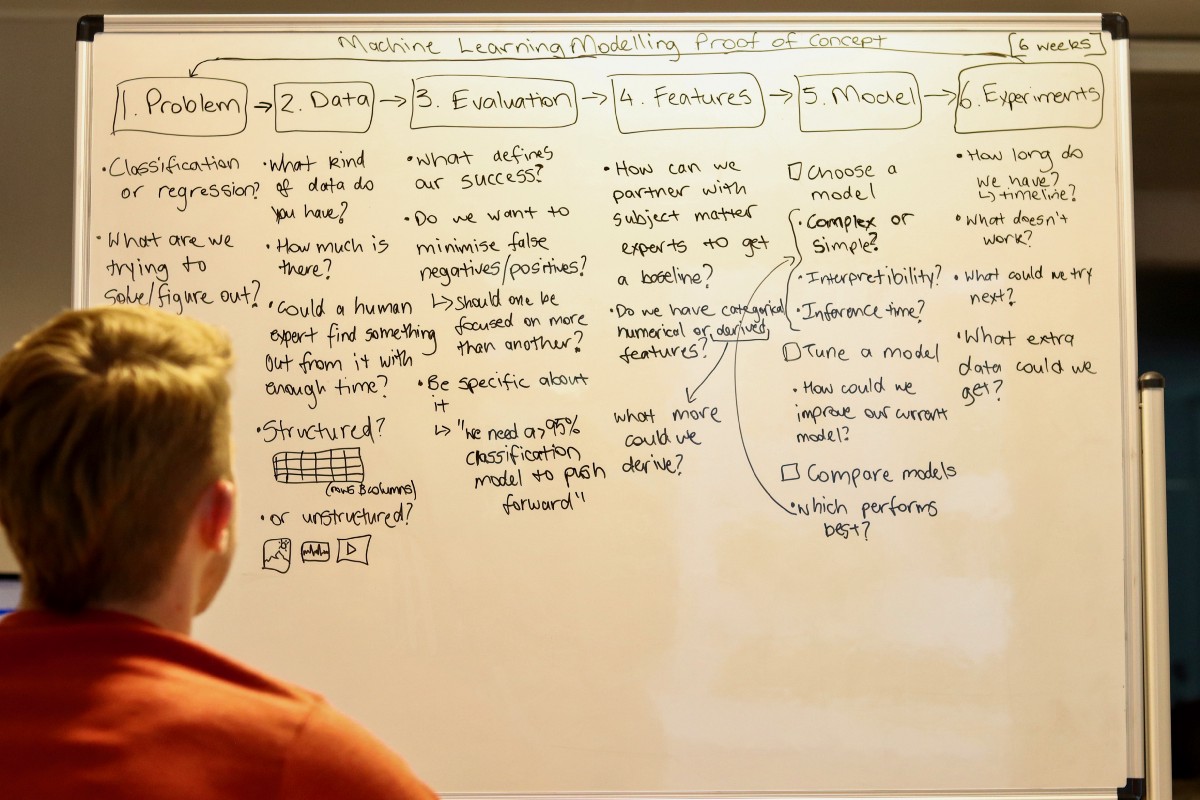 Machine Learning Modelling Proof of Concept
[6 weeks]
1. Problem
2. Data
3. Evaluation
4. Features
5. Model
6. Experiments
• Classification
or regression?
• What are we
trying to
solve/figure out?
• What kind
of data do
you have?
• How much is
there?
• Could a human
expert find something
out from it with
enough time?
• Structured?
(rows & columns)
• or unstructured?
• What defines
our success?
• Do we want to
minimise false
negatives/positives?
↳ Should one be
focused on more
than another?
• Be specific about
it
↳ "We need a >95%
classification
model to push
forward"
• How can we
partner with
subject matter
experts to get
a baseline?
• Do we have categorical
numerical or derived
features?
what more
could we
derive?
Choose a
model
• Complex or
Simple?
• Interpretibility?
• Inference time?
Tune a model
• How could we
improve our current
model?
Compare models
• which performs
best?
• How long do
we have?
↳ timeline?
• What doesn't
work?
• What could we try
next?
• What extra
data could we
get?